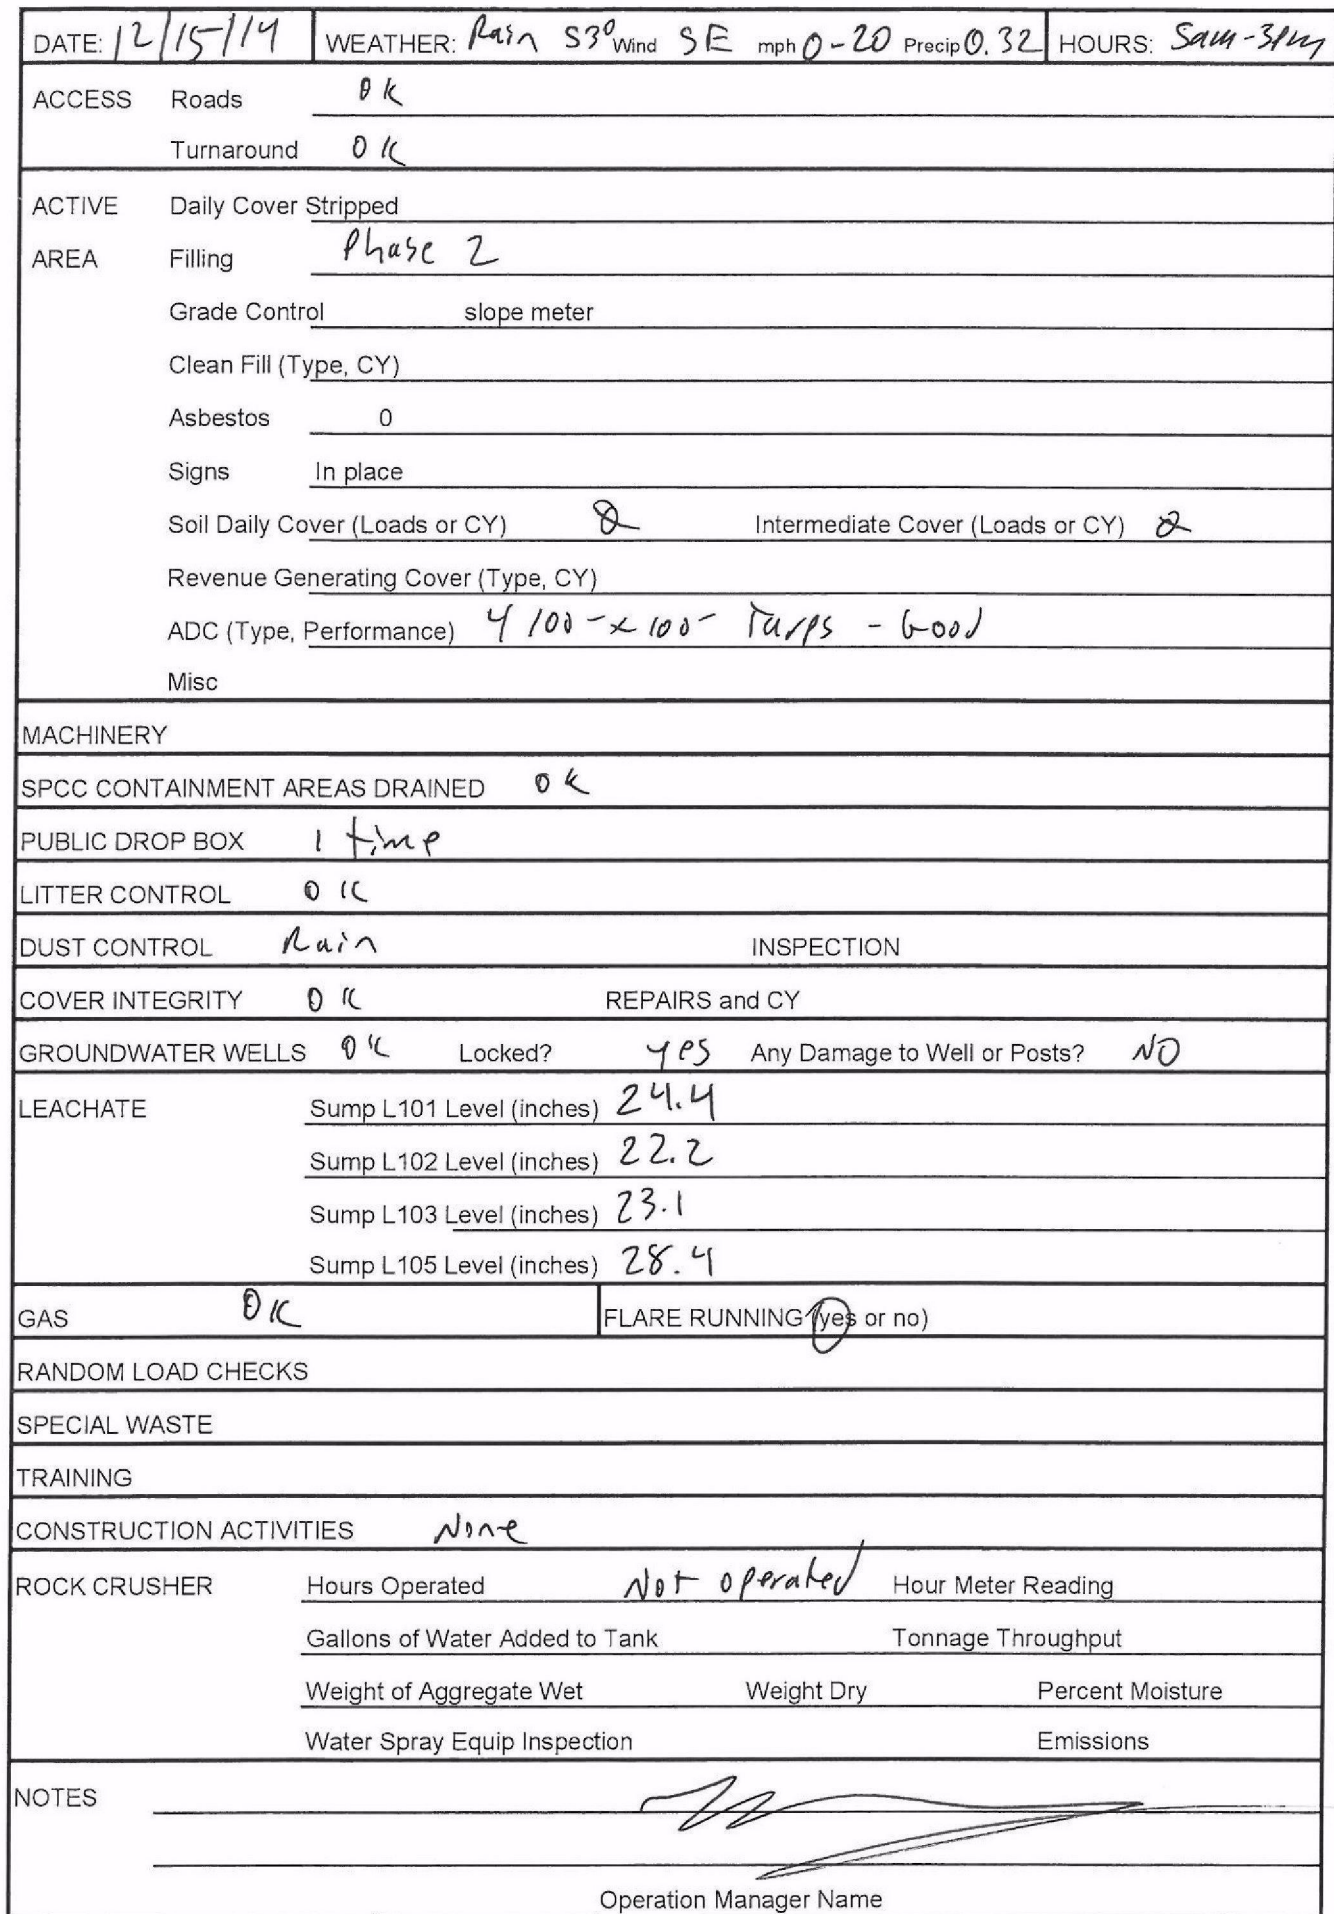 DATE: 12/15/14 WEATHER: Rain 53° Wind SE mph 0-20 Precip 0.32 HOURS: 5am-3pm
ACCESS Roads OK
Turnaround OK
ACTIVE Daily Cover Stripped
AREA Filling Phase 2
Grade Control slope meter
Clean Fill (Type, CY)
Asbestos 0
Signs In place
Soil Daily Cover (Loads or CY) Intermediate Cover (Loads or CY)
Revenue Generating Cover (Type, CY)
ADC (Type, Performance) 4 100-x100- Tarps - Good
Misc
MACHINERY
SPCC CONTAINMENT AREAS DRAINED OK
PUBLIC DROP BOX 1 time
LITTER CONTROL OK
DUST CONTROL Rain INSPECTION
COVER INTEGRITY OK REPAIRS and CY
GROUNDWATER WELLS OK Locked? yes Any Damage to Well or Posts? NO
LEACHATE Sump L101 Level (inches) 24.4
Sump L102 Level (inches) 22.2
Sump L103 Level (inches) 23.1
Sump L105 Level (inches) 28.4
GAS OK FLARE RUNNING (yes or no)
RANDOM LOAD CHECKS
SPECIAL WASTE
TRAINING
CONSTRUCTION ACTIVITIES None
ROCK CRUSHER Hours Operated Not operated Hour Meter Reading
Gallons of Water Added to Tank Tonnage Throughput
Weight of Aggregate Wet Weight Dry Percent Moisture
Water Spray Equip Inspection Emissions
NOTES
Operation Manager Name